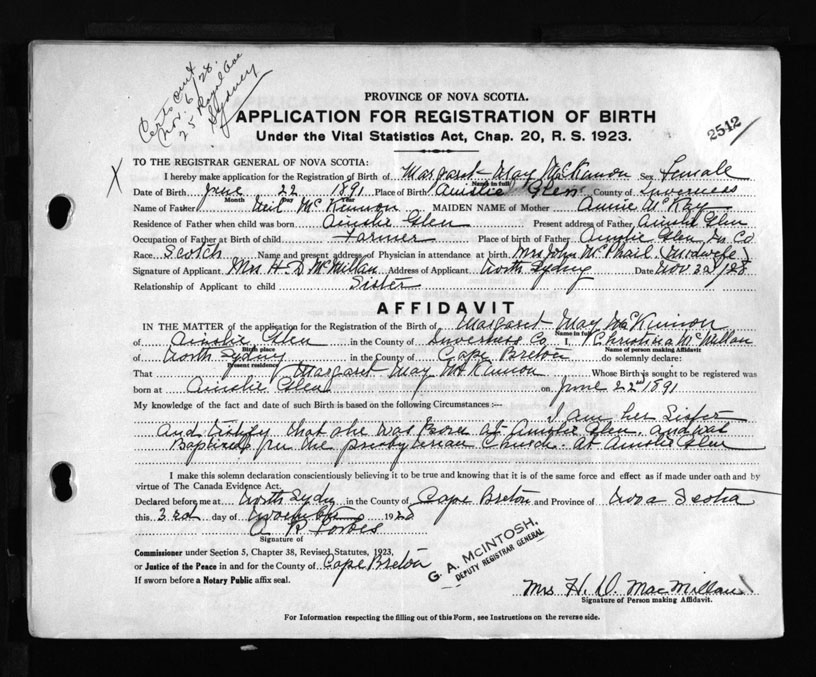 Certs out
Nov. 6/28.
25 Royal Ave
Sydney
PROVINCE OF NOVA SCOTIA.
APPLICATION FOR REGISTRATION OF BIRTH
Under the Vital Statistics Act, Chap. 20, R. S. 1923.
2542
TO THE REGISTRAR GENERAL OF NOVA SCOTIA:
X
I hereby make application for the Registration of Birth of Margaret May McKinnon Sex Female
Name in full
Date of Birth June 22 1891 Place of Birth Ainslie Glen County of Inverness
Month Day Year
Name of Father Neil McKinnon MAIDEN NAME of Mother Annie McKay
Residence of Father when child was born Ainslie Glen Present address of Father Ainslie Glen
Occupation of Father at Birth of child Farmer Place of birth of Father Ainslie Glen Inv. Co
Race Scotch Name and present address of Physician in attendance at birth Mrs John McPhail (Midwife)
Signature of Applicant Mrs. H. D McMillan Address of Applicant North Sydney Date Nov 3rd/28
Relationship of Applicant to child Sister
AFFIDAVIT
IN THE MATTER of the application for the Registration of Birth of Margaret May McKinnon
Name in full
of Ainslie Glen in the County of Inverness Co I, Christina McMillan
Birth place Name of person making Affidavit
of North Sydney in the County of Cape Breton do solemnly declare:
Present residence
That Margaret May McKinnon Whose Birth is sought to be registered was
born at Ainslie Glen on June 22nd 1891
My knowledge of the fact and date of such Birth is based on the following Circumstances :— I am her Sister
and testify that she was Born at Ainslie Glen. and was
Baptized in the presbyterian Church. at Ainslie Glen
I make this solemn declaration conscientiously believing it to be true and knowing that it is of the same force and effect as if made under oath and by
virtue of The Canada Evidence Act.
Declared before me at North Sydney in the County of Cape Breton and Province of Nova Scotia
this 3rd day of November 1928
A R Forbes
Signature of
Commissioner under Section 5, Chapter 38, Revised Statutes, 1923,
or Justice of the Peace in and for the County of Cape Breton
If sworn before a Notary Public affix seal.
G. A. McINTOSH,
DEPUTY REGISTRAR GENERAL
Mrs H. D. MacMillan
Signature of Person making Affidavit.
For Information respecting the filling out of this Form, see Instructions on the reverse side.